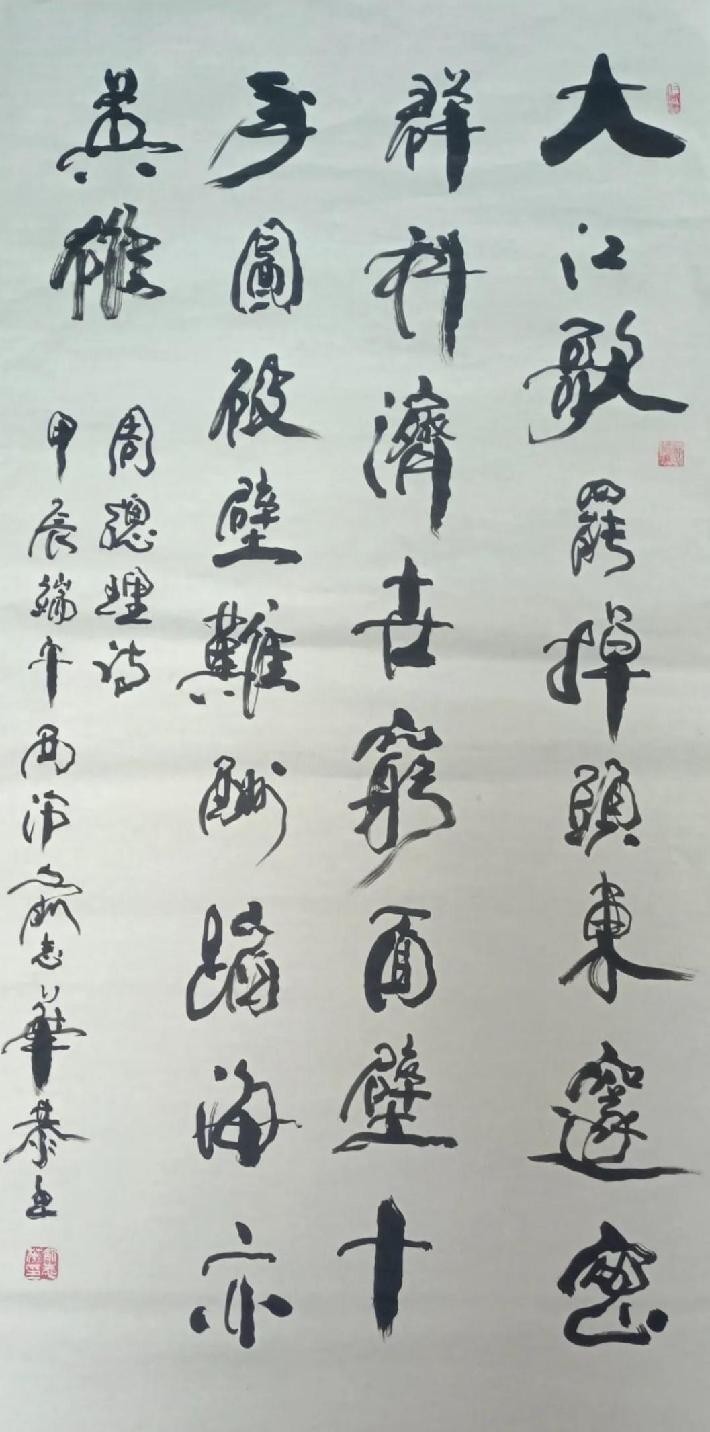 大江歌罷掉頭東邃密
群科濟世窮面壁十
年圖破壁難酬蹈海亦
英雄
周總理詩
甲辰端午西泠俞志華恭書